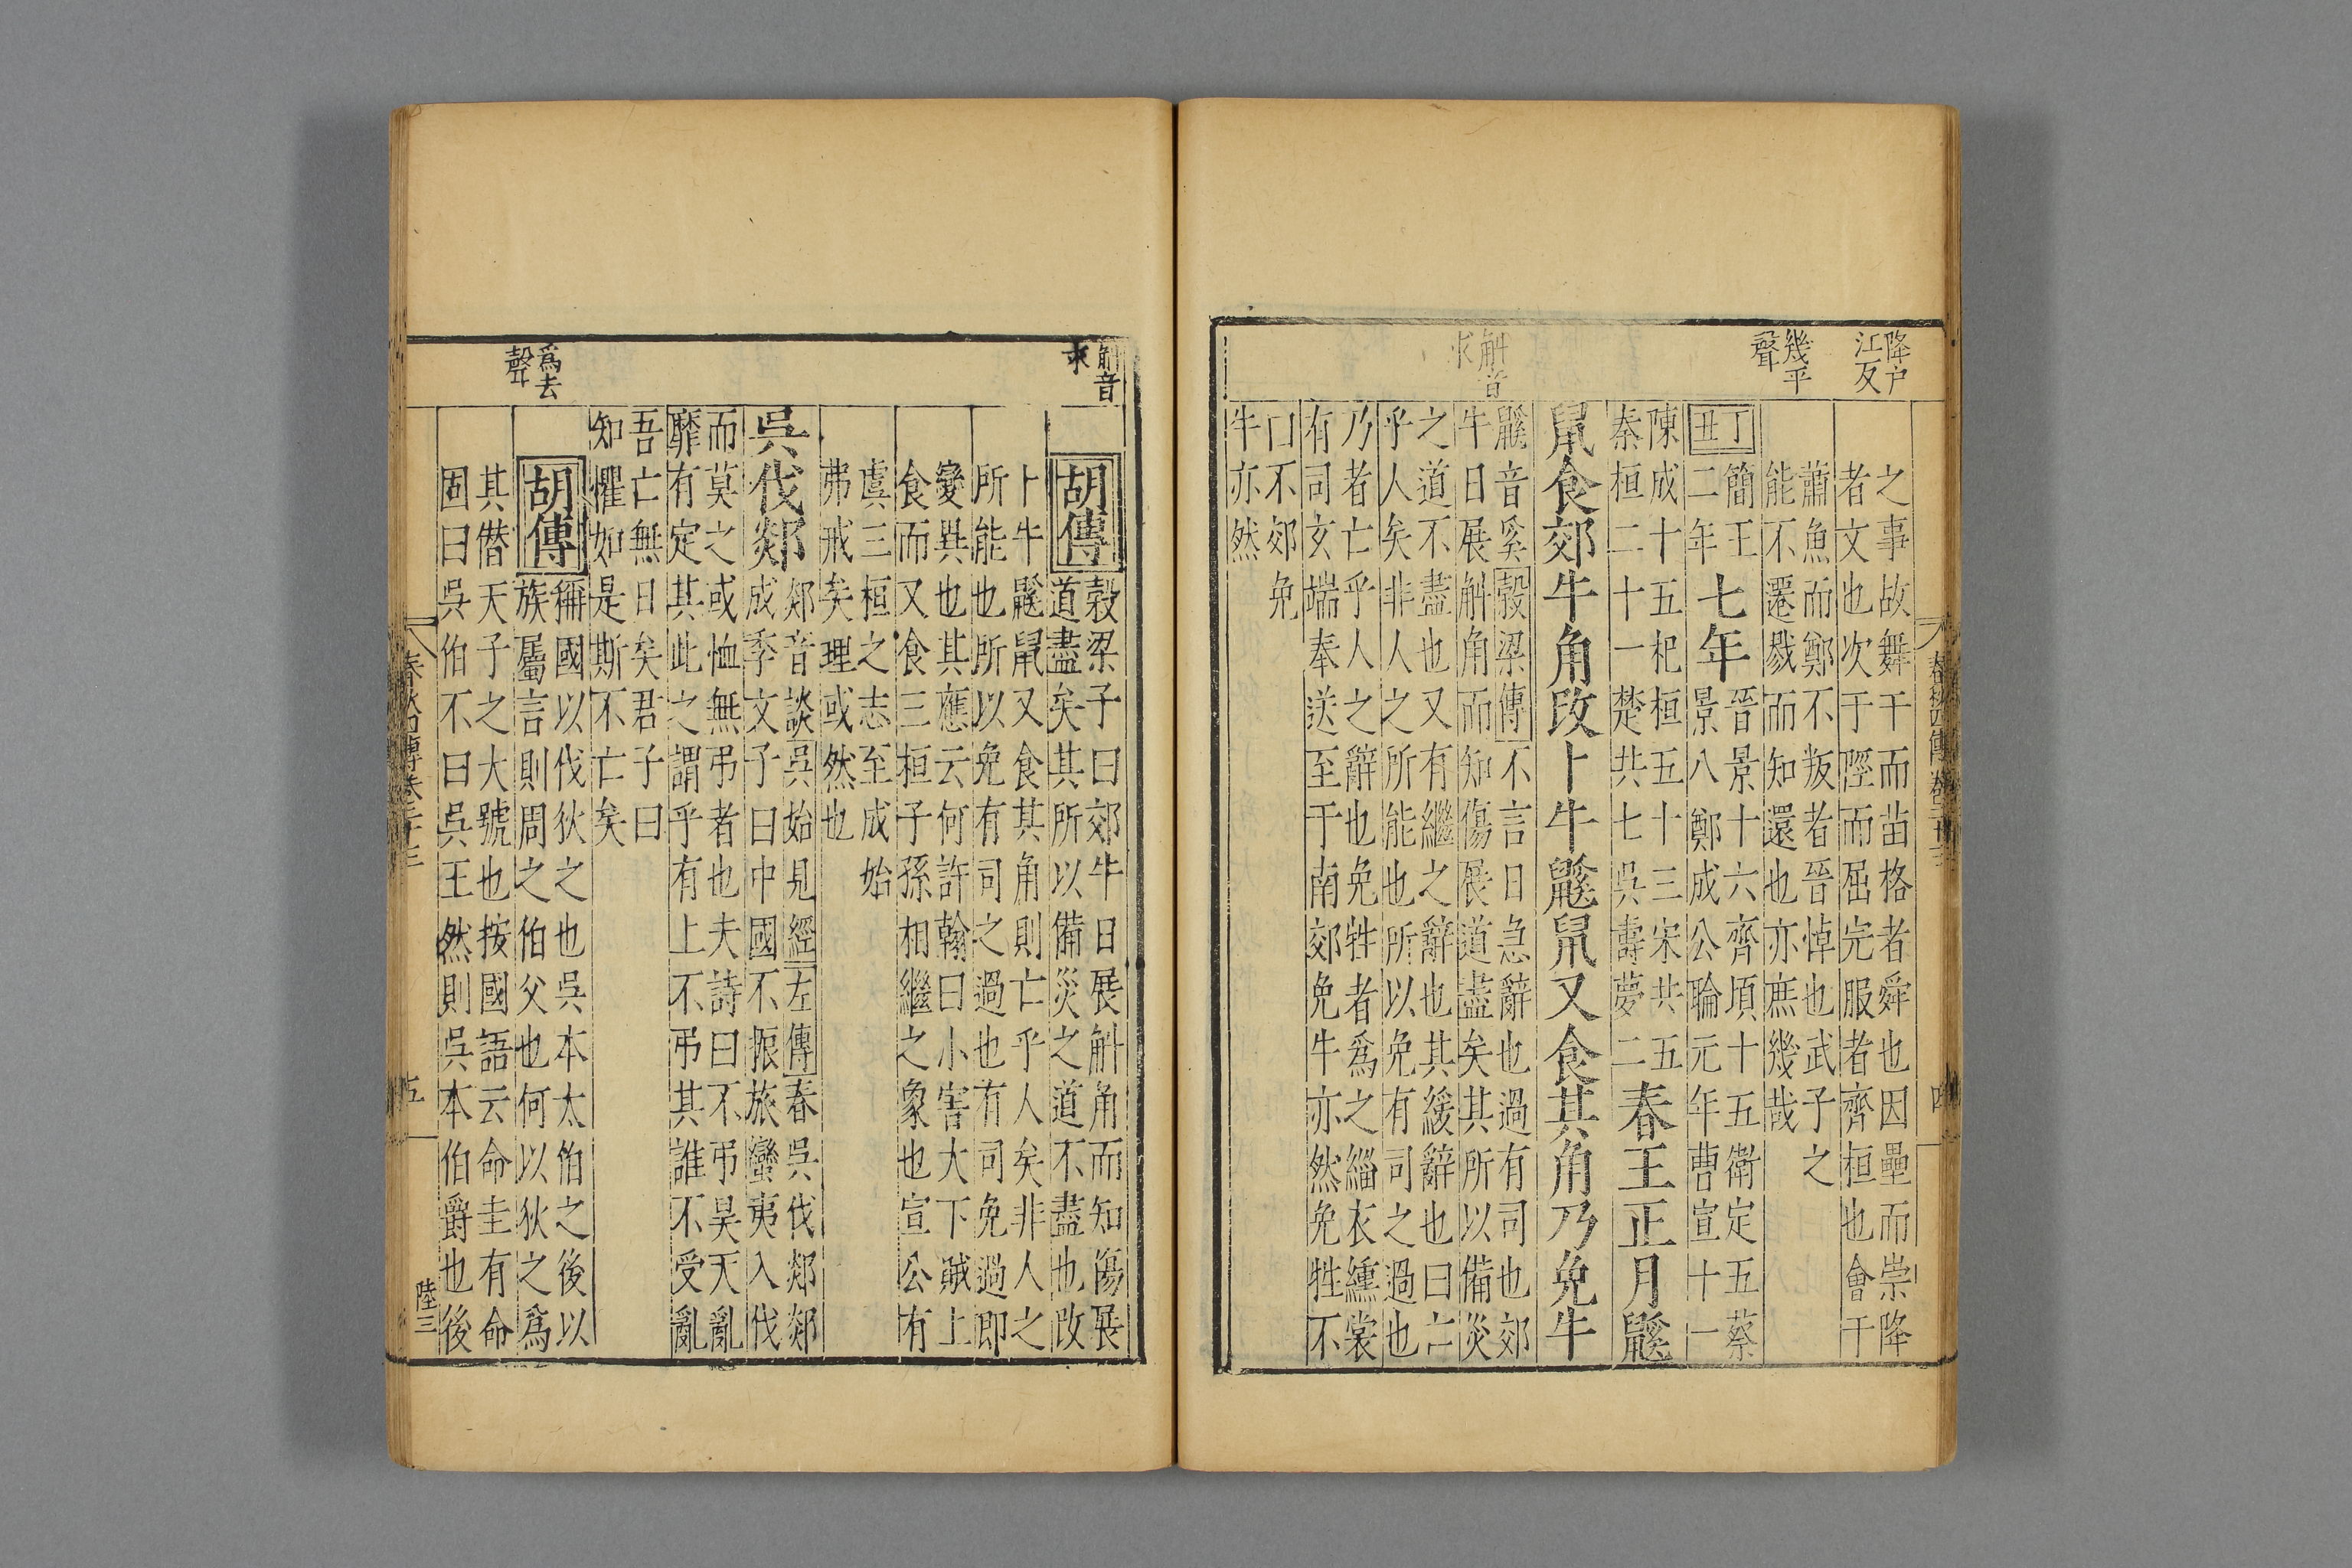 降戶
江反
幾平
聲
斛音
求
之事故舞干而苗格者舜也因壘而崇降
者文也次于陘而屈完服者齊桓也會于
蕭魚而鄭不叛者晉悼也武子之
能不遷戮而知還也亦庶幾哉
丁丑
簡王
二年
七年
晉景十六齊頃十五衛定五蔡
景八鄭成公睔元年曹宣十一
陳成十五杞桓五十三宋共五
秦桓二十一楚共七吳壽夢二
春王正月鼷
鼠食郊牛角改卜牛鼷鼠又食其角乃免牛
鼷音奚穀梁傳不言日急辭也過有司也郊
牛日展斛角而知傷展道盡矣其所以備災
之道不盡也又有繼之辭也其緩辭也曰亡
乎人矣非人之所能也所以免有司之過也
乃者亡乎人之辭也免牲者爲之緇衣纁裳
有司玄端奉送至于南郊免牛亦然免牲不
曰不郊免
牛亦然
春秋四傳卷二十三
四
斛音
求
爲去
聲
胡傳
穀梁子曰郊牛日展斛角而知傷展
道盡矣其所以備災之道不盡也改
卜牛鼷鼠又食其角則亡乎人矣非人之
所能也所以免有司之過也有司免過即
變異也其應云何許翰曰小害大下賊上
食而又食三桓子孫相繼之象也宣公有
虞三桓之志至成始
弗戒矣理或然也
吳伐郯
郯音談吳始見經左傳春吳伐郯郯
成季文子曰中國不振旅蠻夷入伐
而莫之或恤無弔者也夫詩曰不弔昊天亂
靡有定其此之謂乎有上不弔其誰不受亂
吾亡無日矣君子曰
知懼如是斯不亡矣
胡傳
稱國以伐狄之也吳本太伯之後以
族屬言則周之伯父也何以狄之爲
其僭天子之大號也按國語云命圭有命
固曰吳伯不曰吳王然則吳本伯爵也後
春秋四傳卷二十三
五
陸三